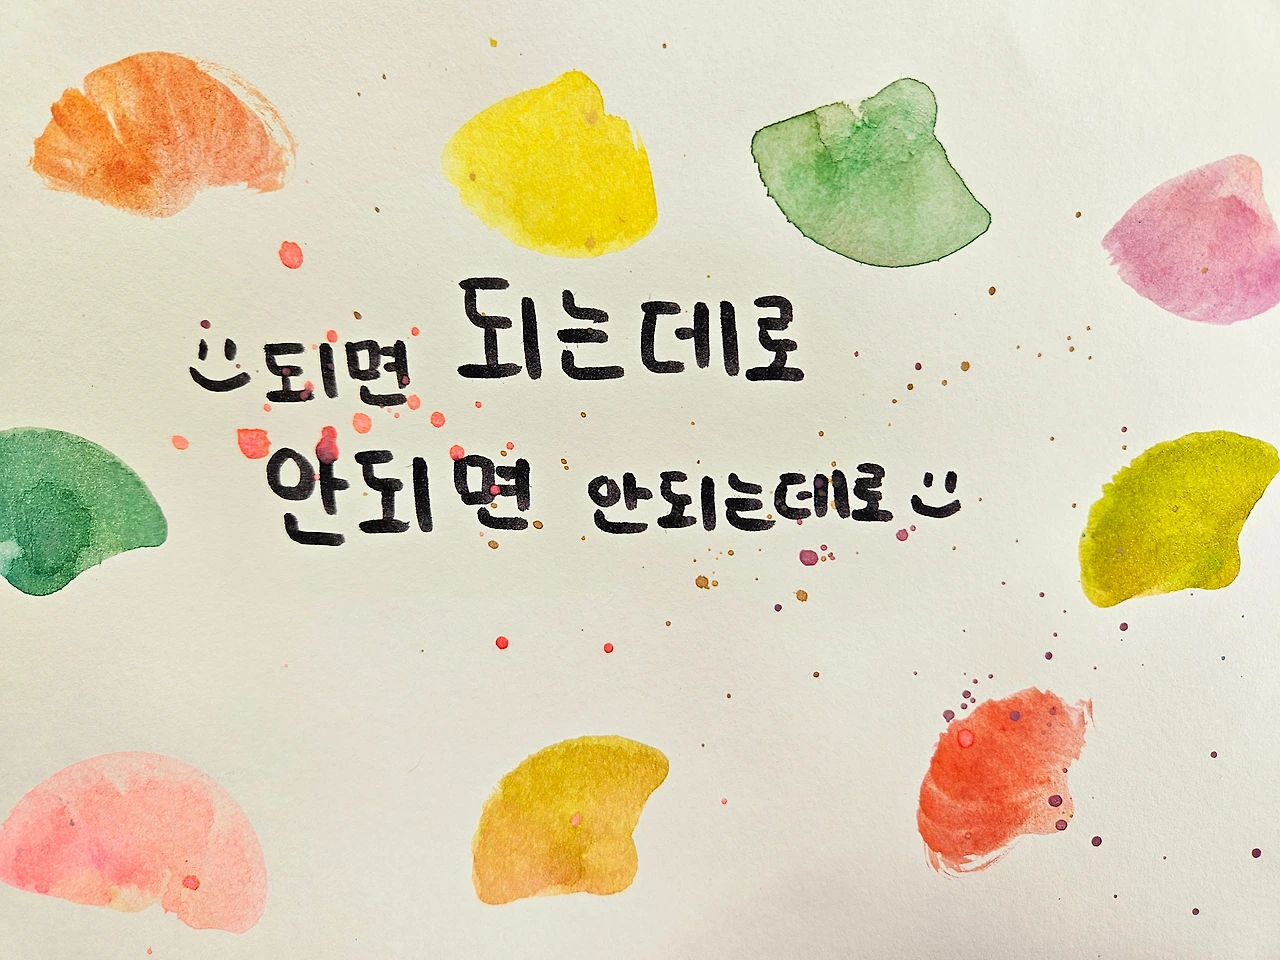 되면 되는데로
안되면 안되는데로